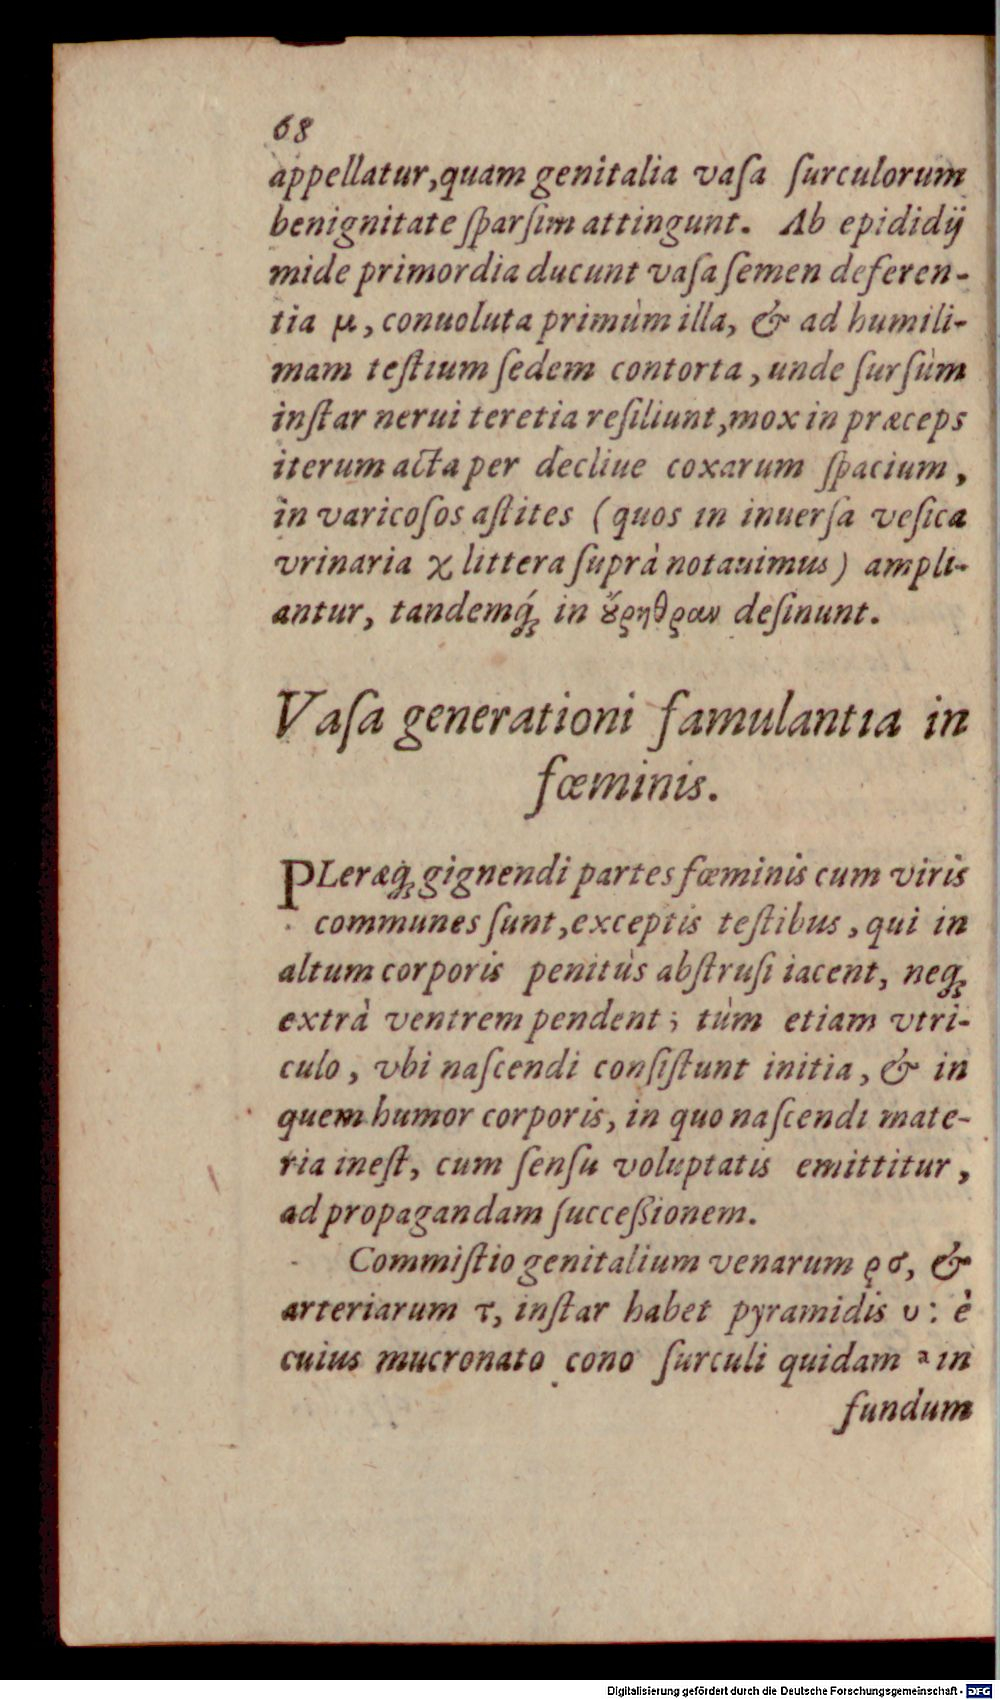 68
appellatur, quam genitalia vaſa ſurculorum
benignitate ſparſim attingunt. Ab epididij
mide primordia ducunt vaſa ſemen deferen-
tia μ, conuoluta primùm illa, & ad humili-
mam teſtium ſedem contorta, unde ſurſùm
inſtar nerui teretia reſiliunt, mox in præceps
iterum acta per decliue coxarum ſpacium,
in varicoſos aſtites (quos in inuerſa veſica
vrinaria χ littera ſuprà notauimus) ampli-
antur, tandemq́ꝫ in ȣ̓́ρηθραν deſinunt.
Vaſa generationi famulantia in
fœminis.
PLeræqꝫ gignendi partes fœminis cum viris
communes ſunt, exceptis teſtibus, qui in
altum corporis penitùs abſtruſi iacent, neqꝫ
extrà ventrem pendent; tùm etiam vtri-
culo, vbi naſcendi conſiſtunt initia, & in
quem humor corporis, in quo naſcendi mate-
ria ineſt, cum ſenſu voluptatis emittitur,
ad propagandam ſucceßionem.
Commiſtio genitalium venarum ϱ σ, &
arteriarum τ, inſtar habet pyramidis υ: è
cuius mucronato cono ſurculi quidam ᵃ in
fundum
Digitalisierung gefördert durch die Deutsche Forschungsgemeinschaft - DFG